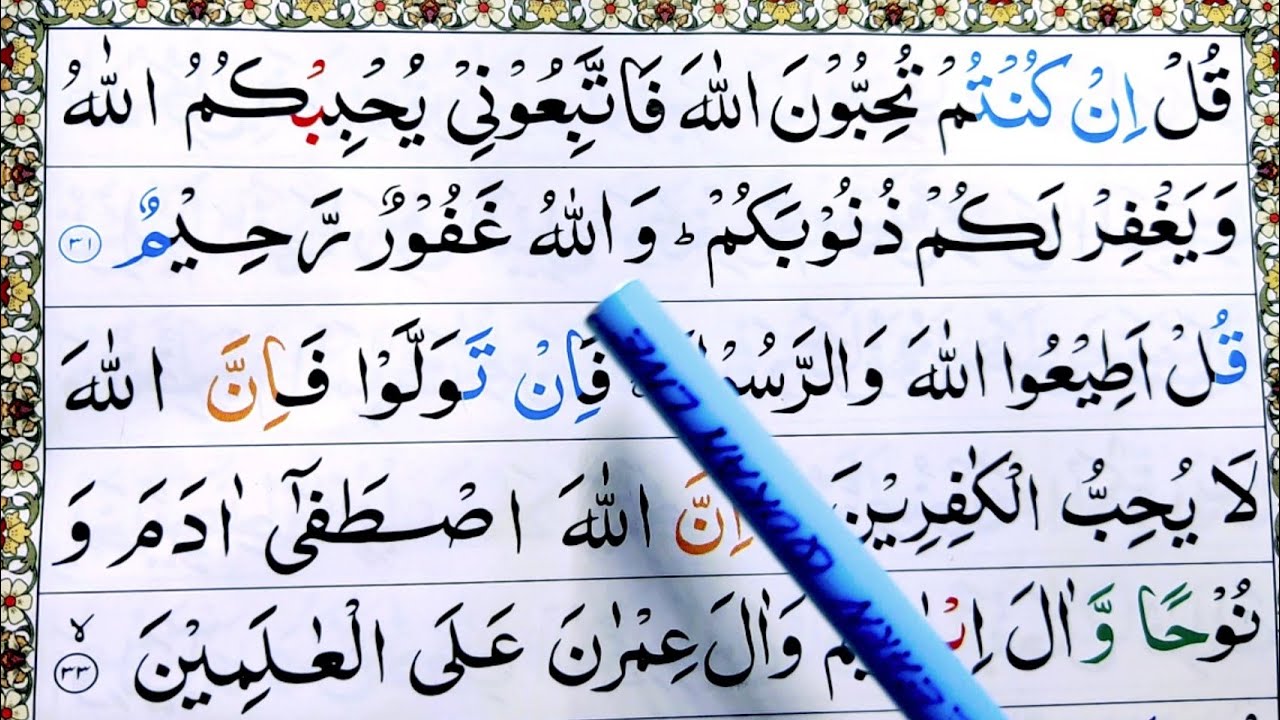 قُلْ اِنْ كُنْتُمْ تُحِبُّوْنَ اللّٰهَ فَاتَّبِعُوْنِيْ يُحْبِبْكُمُ اللّٰهُ
وَيَغْفِرْ لَكُمْ ذُنُوْبَكُمْ ؕ وَاللّٰهُ غَفُوْرٌ رَّحِيْمٌ ۳۱
قُلْ اَطِيْعُوا اللّٰهَ وَالرَّسُوْلَ فَاِنْ تَوَلَّوْا فَاِنَّ اللّٰهَ
لَا يُحِبُّ الْكٰفِرِيْنَ اِنَّ اللّٰهَ اصْطَفٰٓى اٰدَمَ وَ
نُوْحًا وَّ اٰلَ وَاٰلَ عِمْرٰنَ عَلَى الْعٰلَمِيْنَ ۙ ۳۳
LEARN QURAN LIVE